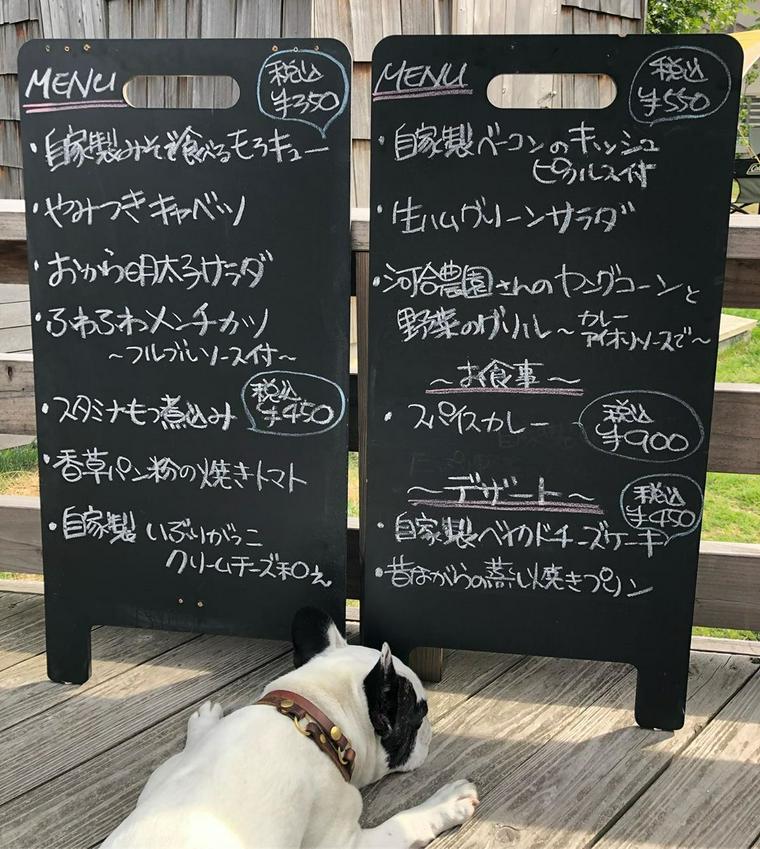 MENU
税込
¥350
・自家製みそで食べるもろキュー
・やみつきキャベツ
・おから明太子サラダ
・ふわふわメンチカツ
～フルブルソース付～
・スタミナもつ煮込み
税込
¥450
・香草パン粉の焼きトマト
・自家製いぶりがっこ
クリームチーズ和え
MENU
税込
¥550
・自家製ベーコンのキッシュ
ピクルス付
・生ハムグリーンサラダ
・河合農園さんのヤングコーンと
野菜のグリル～カレー
アイオリソースで～
～お食事～
・スパイスカレー
税込
¥900
～デザート～
税込
¥450
・自家製ベイクドチーズケーキ
・昔ながらの蒸し焼きプリン